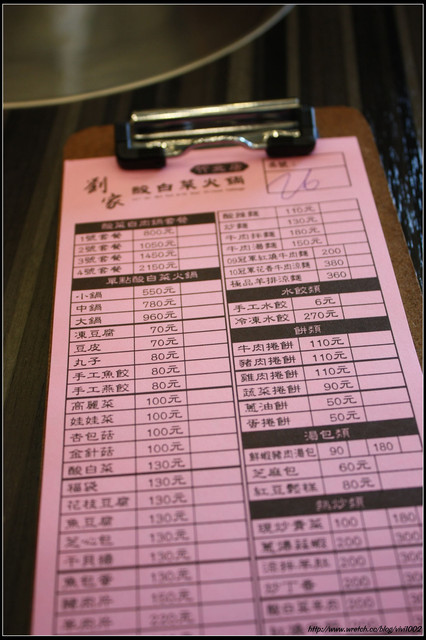 劉家
酸白菜火鍋
26
酸菜白肉鍋套餐
1號套餐 800元
2號套餐 1050元
3號套餐 1450元
4號套餐 2150元
單點酸白菜火鍋
小鍋 550元
中鍋 780元
大鍋 960元
凍豆腐 70元
豆皮 70元
丸子 80元
手工魚餃 80元
手工燕餃 80元
高麗菜 100元
娃娃菜 100元
杏包菇 100元
金針菇 100元
酸白菜 130元
福袋 130元
花枝豆腐 130元
魚豆腐 130元
芝心包 130元
130元
魚包蛋 130元
150元
酸辣麵 110元
炒麵 130元
牛肉拌麵 180元
牛肉湯麵 150元
09冠軍紅燒牛肉麵 200
10冠軍花香牛肉涼麵 380
極品羊排涼麵 360
水餃類
手工水餃 6元
冷凍水餃 270元
餅類
牛肉捲餅 110元
豬肉捲餅 110元
雞肉捲餅 110元
蔬菜捲餅 90元
蔥油餅 50元
蛋捲餅 50元
湯包類
鮮蝦豬肉湯包 90 180
芝麻包 60元
紅豆鬆糕 80元
熱炒類
現炒青菜 100 180
200 300
涼拌羊肚 200 300
炒丁香 200
酸白菜羊肉 200
http://www.wretch.cc/blog/vivi1002